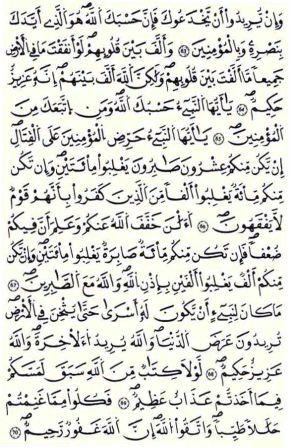 وَإِن يُرِيدُوا أَن يَخْدَعُوكَ فَإِنَّ حَسْبَكَ اللَّهُ هُوَ الَّذِي أَيَّدَكَ
بِنَصْرِهِ وَبِالْمُؤْمِنِينَ وَأَلَّفَ بَيْنَ قُلُوبِهِمْ لَوْ أَنفَقْتَ مَا فِي الْأَرْضِ
جَمِيعًا مَا أَلَّفْتَ بَيْنَ قُلُوبِهِمْ وَلَكِنَّ اللَّهَ أَلَّفَ بَيْنَهُمْ إِنَّهُ عَزِيزٌ
حَكِيمٌ يَا أَيُّهَا النَّبِيءُ حَسْبُكَ اللَّهُ وَمَنِ اتَّبَعَكَ مِنَ
الْمُؤْمِنِينَ يَا أَيُّهَا النَّبِيءُ حَرِّضِ الْمُؤْمِنِينَ عَلَى الْقِتَالِ
إِن يَكُن مِنكُمْ عِشْرُونَ صَابِرُونَ يَغْلِبُوا مِائَتَيْنِ وَإِن تَكُن
مِنكُم مِائَةٌ يَغْلِبُوا أَلْفًا مِنَ الَّذِينَ كَفَرُوا بِأَنَّهُمْ قَوْمٌ
لَا يَفْقَهُونَ الْآنَ خَفَّفَ اللَّهُ عَنكُمْ وَعَلِمَ أَنَّ فِيكُمْ
ضُعْفًا فَإِن تَكُن مِنكُم مِائَةٌ صَابِرَةٌ يَغْلِبُوا مِائَتَيْنِ وَإِن يَكُن
مِنكُمْ أَلْفٌ يَغْلِبُوا أَلْفَيْنِ بِإِذْنِ اللَّهِ وَاللَّهُ مَعَ الصَّابِرِينَ
مَا كَانَ لِنَبِيءٍ أَن يَكُونَ لَهُ أَسْرَى حَتَّى يُثْخِنَ فِي الْأَرْضِ
تُرِيدُونَ عَرَضَ الدُّنْيَا وَاللَّهُ يُرِيدُ الْآخِرَةَ وَاللَّهُ
عَزِيزٌ حَكِيمٌ لَوْلَا كِتَابٌ مِنَ اللَّهِ سَبَقَ لَمَسَّكُمْ
فِيمَا أَخَذْتُمْ عَذَابٌ عَظِيمٌ فَكُلُوا مِمَّا غَنِمْتُمْ
حَلَالًا طَيِّبًا وَاتَّقُوا اللَّهَ إِنَّ اللَّهَ غَفُورٌ رَحِيمٌ